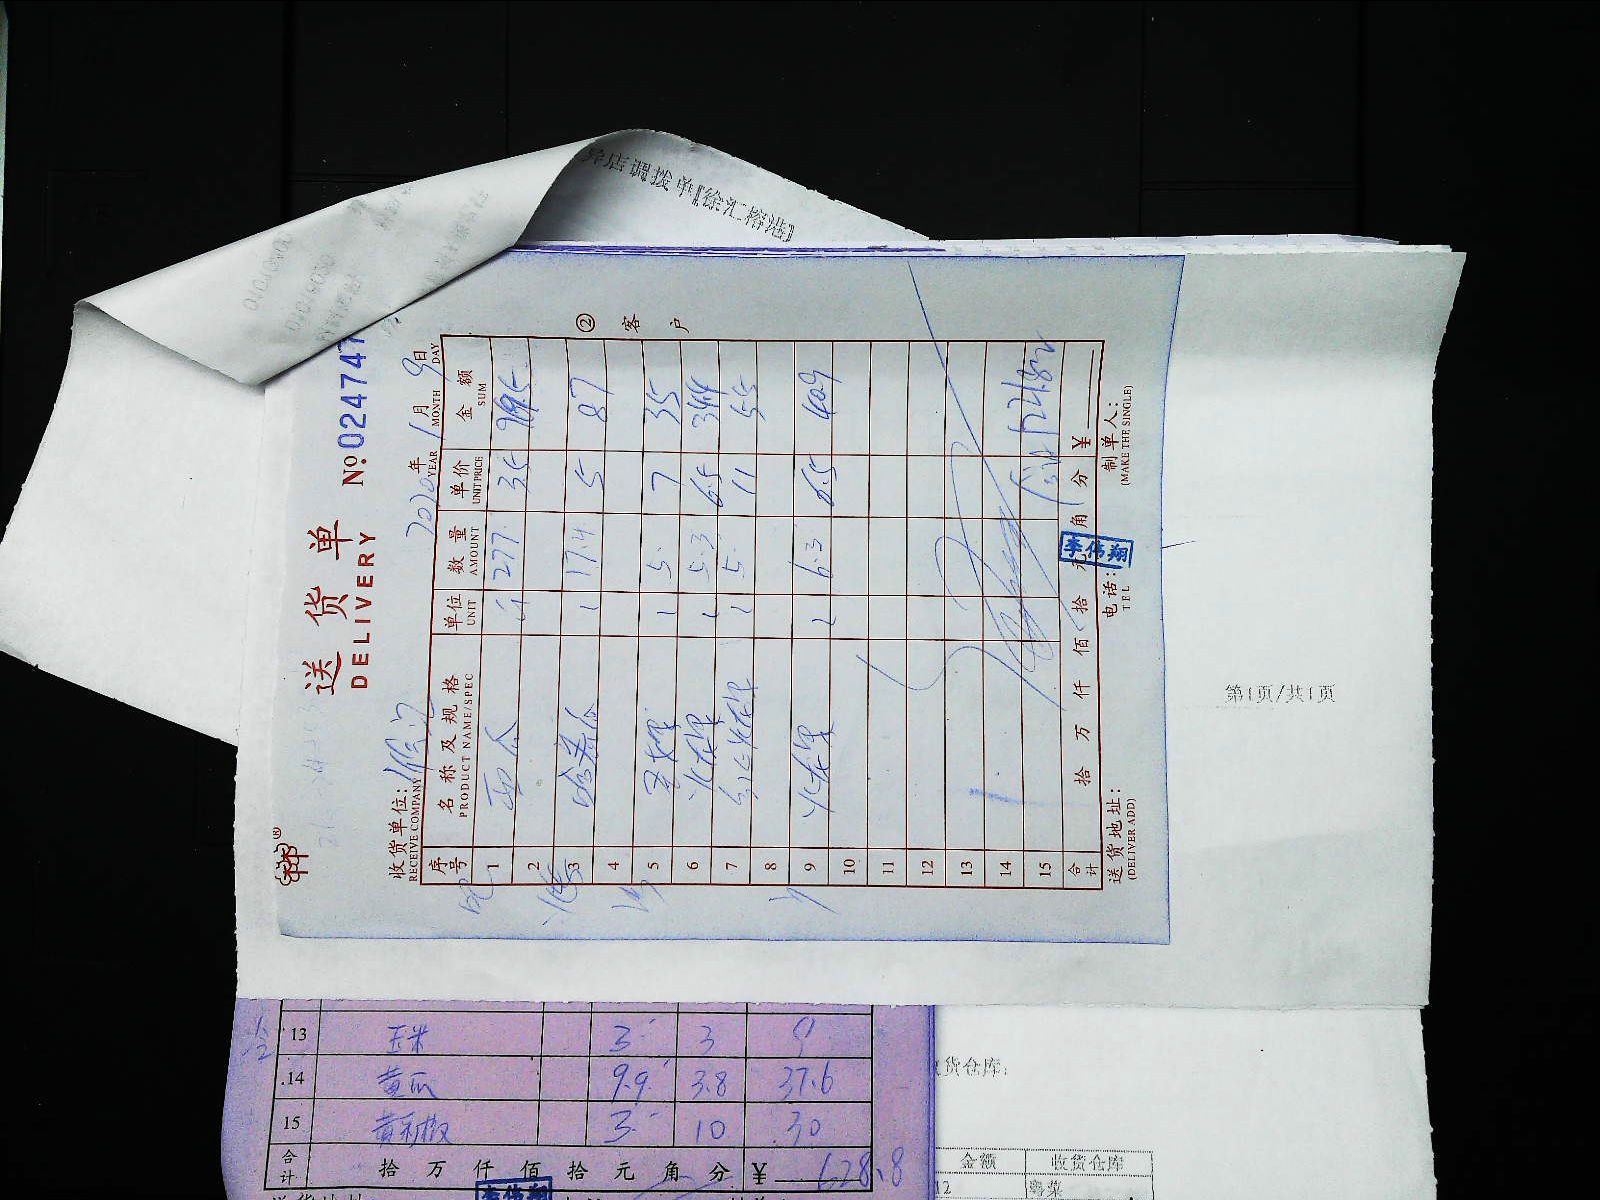 异店调拨单【徐汇榕港】
祥®
送货单
DELIVERY
№ 024747
收货单位：
RECEIVE COMPANY
2020年 1月 9日
YEAR MONTH DAY
序号 名称及规格 单位 数量 单价 金额
PRODUCT NAME/SPEC UNIT AMOUNT UNIT PRICE SUM
1 西瓜 斤 277 3.5
2
3 哈密瓜 17.4 5 87
4
5 5 7 35
6 火龙果 5.3 6.5 34.4
7 红火龙果 5 11 55
8
9 火龙果 6.3 6.5 40.9
10
11
12
13
14
15
合计 拾 万 仟 佰 拾 元 角 分 ¥
李伟翔
送货地址： 电话： 制单人：
(DELIVER ADD) TEL (MAKE THE SINGLE)
② 客户
第1页/共1页
13 玉米 3 3 9
14 黄瓜 9.9 3.8 37.6
15 黄彩椒 3 10 30
合计 拾 万 仟 佰 拾 元 角 分 ¥ 628.8
李伟翔
货仓库：
金额 收货仓库
12 粤菜